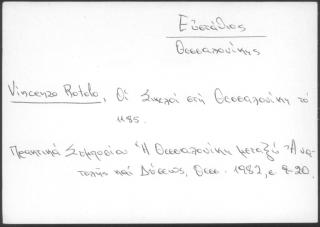 Εὐστάθιος
Θεσσαλονίκης
Vincenzo Rotolo, Οἱ Σικελοί στή Θεσσαλονίκη τό
1185.
Πρακτικά Συμποσίου "Η Θεσσαλονίκη μεταξύ Ἀνα-
τολῆς καί Δύσεως, Θεσ. 1982, σ. 9-20.